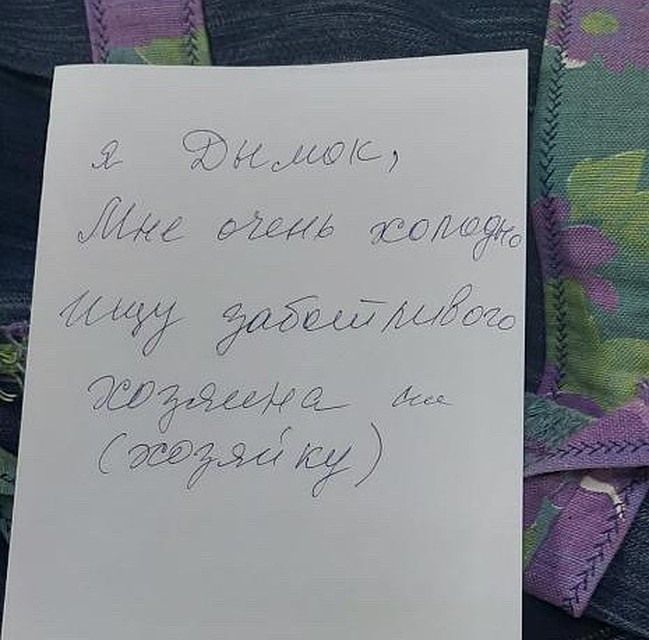 я Дымок,
Мне очень холодно
ищу заботливого
хозяина или
(хозяйку)